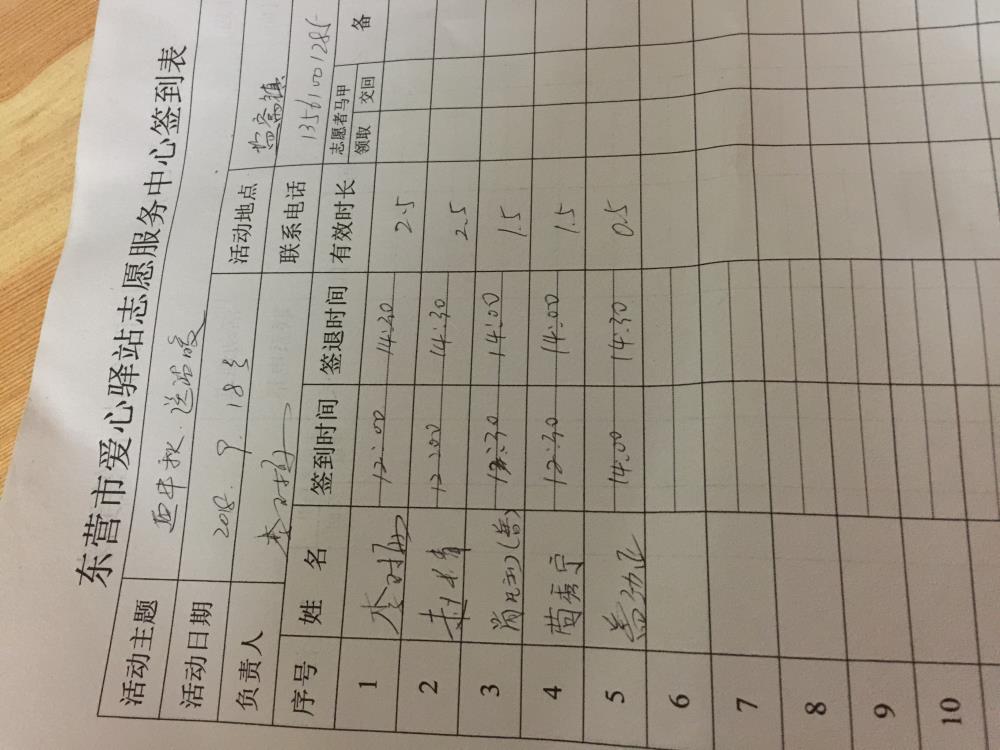 东营市爱心驿站志愿服务中心签到表
活动主题 迎中秋.送温暖
活动日期 2018.9.18号 活动地点
负责人 联系电话 13561001285
序号 姓名 签到时间 签退时间 有效时长 志愿者马甲 备
领取 交回
1 12:00 14:30 2.5
2 12:00 14:30 2.5
3 12:30 14:00 1.5
4 12:30 14:00 1.5
5 14:00 14:30 0.5
6
7
8
9
10